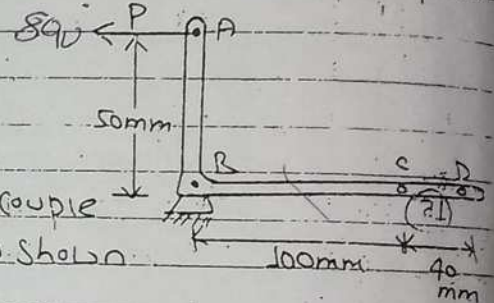 P
A
50mm
B
C
D
couple
Shown
100mm
40
mm